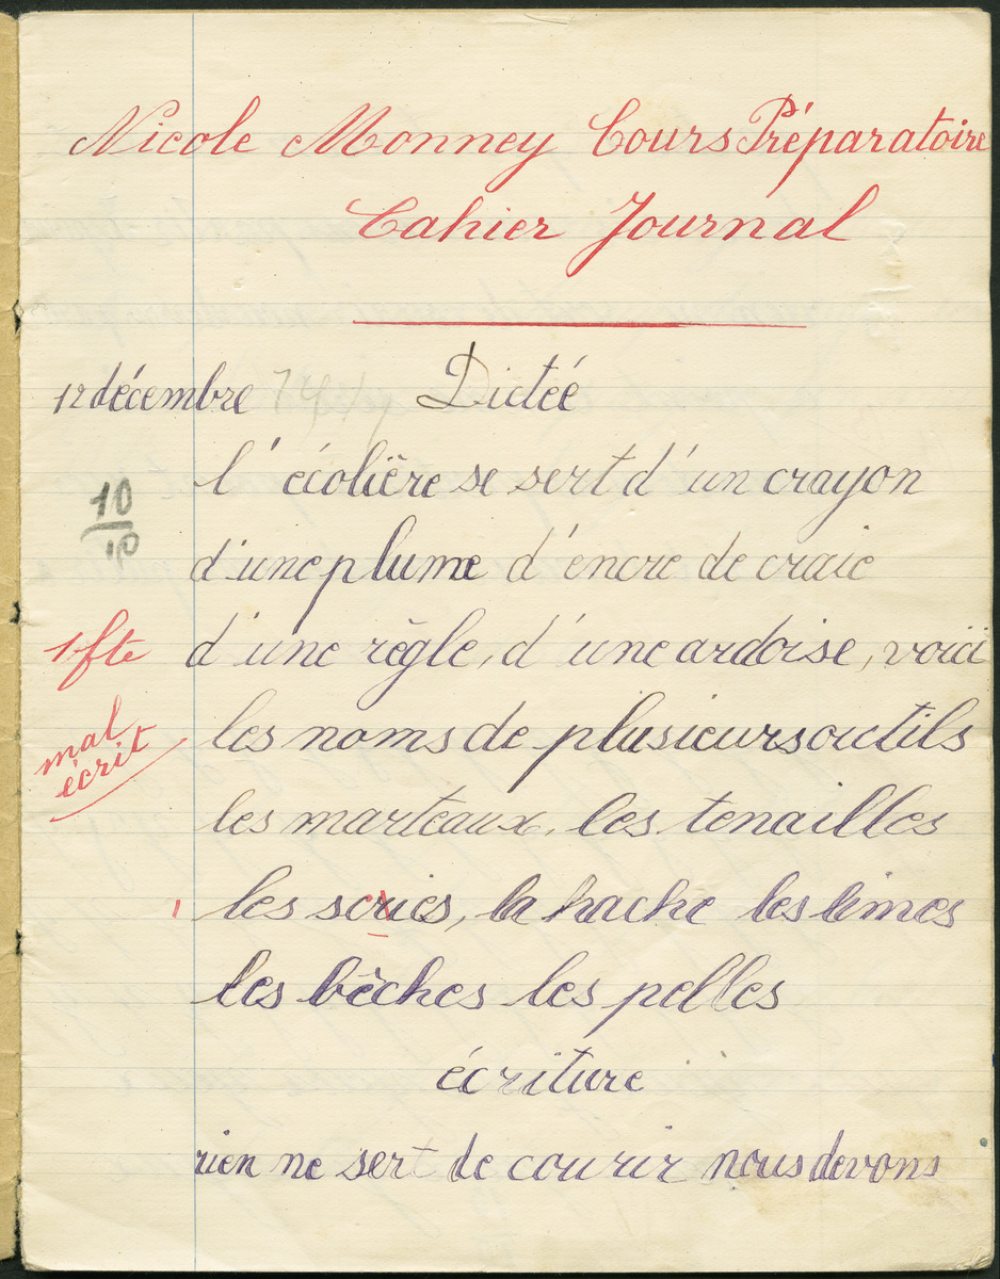 Nicole Monney Cours Préparatoire
Cahier Journal
12 décembre 1944 Dictée
l'écolière se sert d'un crayon
10
10
d'une plume d'encre de craie
1 fte
d'une règle, d'une ardoise, voici
mal
écrit
les noms de plusieurs outils
les marteaux, les tenailles
les scries, la hache les limes
les bêches les pelles
écriture
rien ne sert de courir nous devons